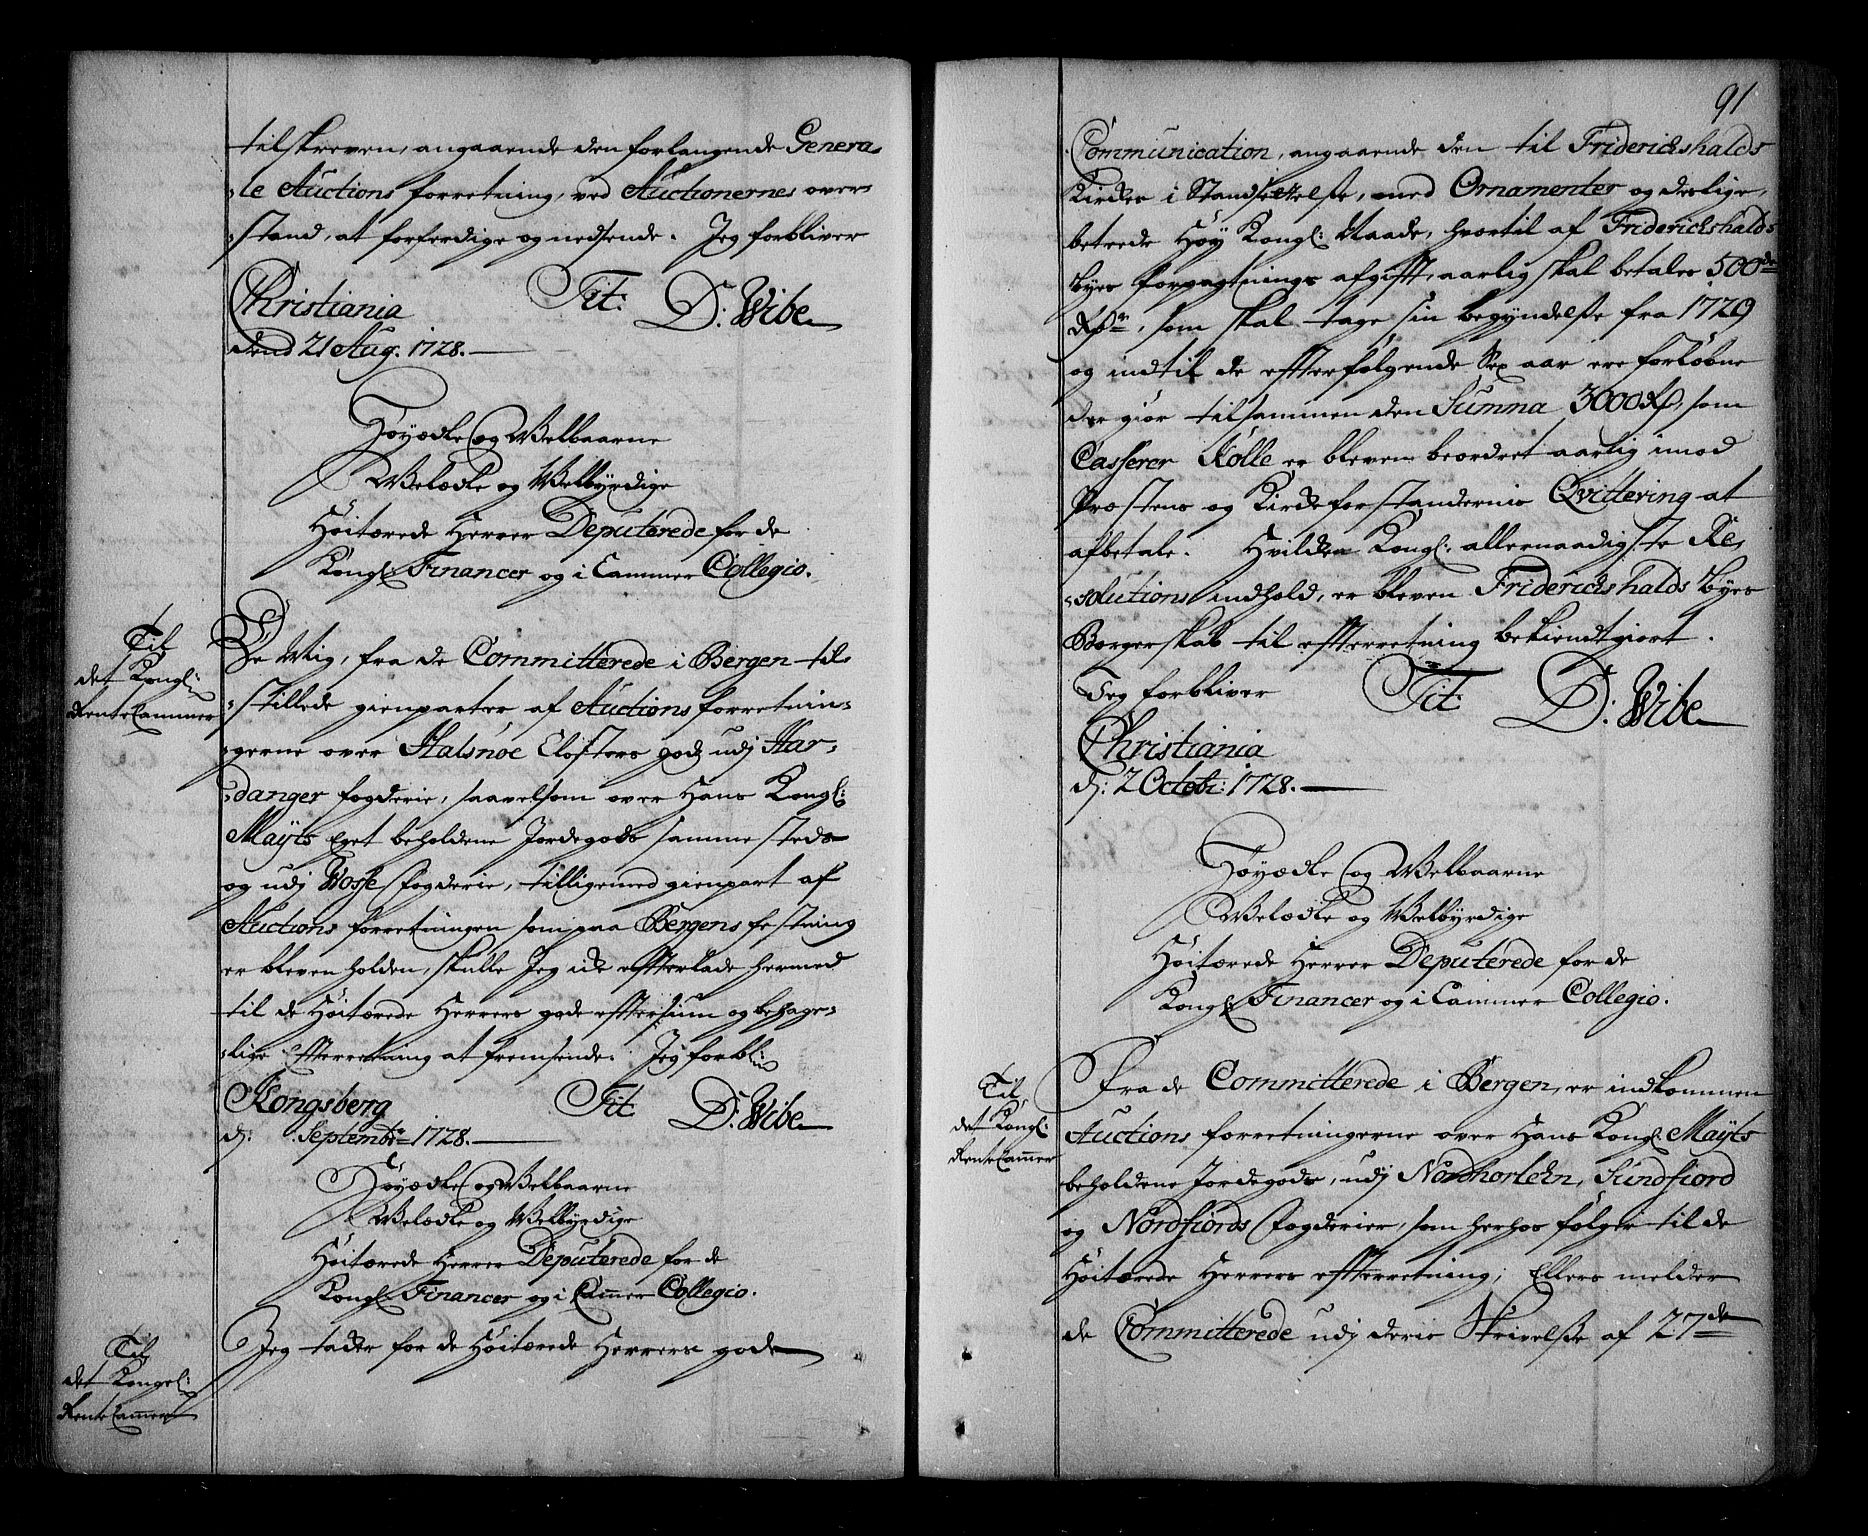 tilskreven, angaaende den forlangende Genera-
-le Auctions forretning, ved Auctionernes over-
-stand, at forferdige og nedsende. Jeg forbliver
Christiania Tit: D: Wibe
dend 21 Aug. 1728.
Høyædle og Welbaarne
Welædle og Welbyrdige
Høitærede Herrer Deputerede for de
Kongl: Financer og i Cammer Collegio.
Til
det Kongl:
Rente Cammer
De Mig, fra de Committerede i Bergen til-
-stillede gienparter af Auctions forretnin-
-gerne over Halsnøe Closters gods udj Har-
-danger fogderie, saavelsom over Hans Kongl:
Mayts Eget beholdene Jordegods sammesteds
og udj Wosse fogderie, tilligemed gienpart af
Auctions forretningen som paa Bergens festning
er bleven holden, skulle Jeg icke effterlade hermed
til de Høitærede Herrers gode efftersiun og behage-
-lige Effterretning at fremsende. Jeg forbl:
Kongsberg Tit D: Wibe
d: Septembr 1728.
Høyædle og Welbaarne
Welædle og Welbyrdige
Høitærede Herrer Deputerede for de
Kongl: Financer og i Cammer Collegio.
Til
det Kongel:
Rente Cammer
Jeg tacker for de Høitærede Herrers gode
91
Communication, angaaende den til Friderichshalds
Kirckes i Standsettelse, med Ornamenter og deslige,
betrede Høy Kongl: Naade, hvortil af Friderichshalds
Byes forpagtnings afgifft, aarlig skal betales 500de
Rdr, som skal tage sin begyndelse fra 1729
og indtil de effterfølgende Sex aar ere forløbne
der giør tilsammen den Summa 3000 Rd, som
Casserer Rølle er bleven beordret aarlig imod
Præstens og Kirckeforstandernis Qvittering at
afbetale. Hvilcken Kongl: allernaadigste Re-
-solutions indhold, er bleven Friderichshalds Byes
Borgerskab til effterretning bekiendtgiort.
Jeg forbliver Tit: D: Wibe
Christiania
d: 2 Octobr: 1728.
Høyædle og Welbaarne
Welædle og Welbyrdige
Høitærede Herrer Deputerede for de
Kongl: Financer og i Cammer Collegio.
Til
det Kongl:
Rente Cammer
Fra de Committerede i Bergen, er indkommen
Auctions forretningerne over Hans Kongl: Mayts
beholdene Jordegods, udj Nordhorlehn, Sundfiord
og Nordfiords fogderier, som herhos følger til de
Høitærede Herrers effterretning; Ellers melder
de Committerede udj deris Skrivelse af 27de